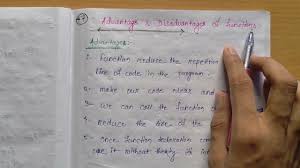 Advantages & Disadvantages of functions
Advantages:-
1- function reduce the repetition
line of code in the program.
2- make our code clear and
3- we can call the function
4- Reduce the size of the
5- once function declaration
use it without